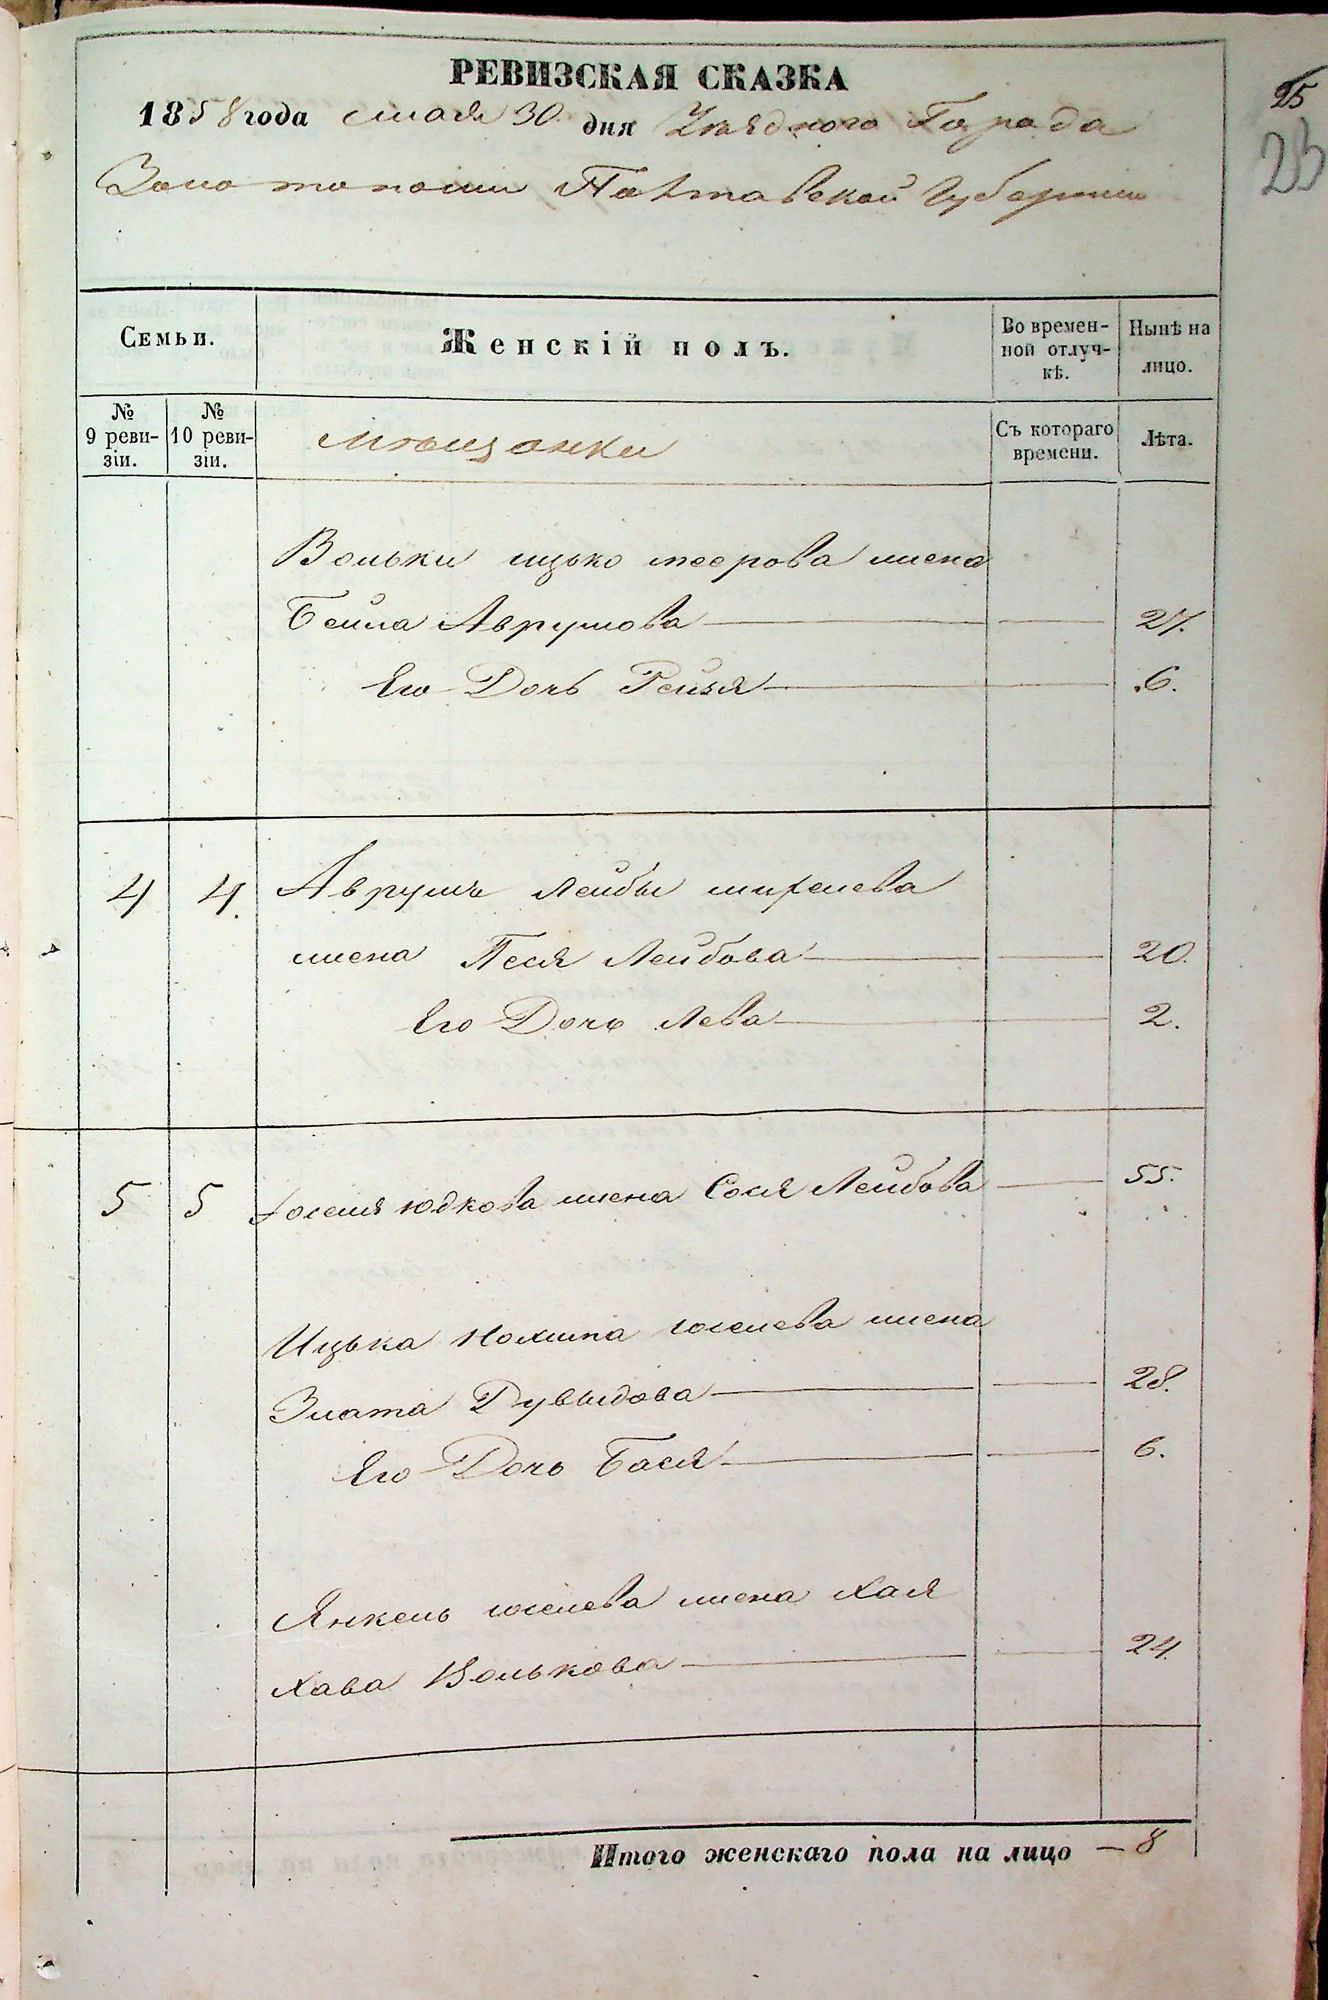 РЕВИЗСКАЯ СКАЗКА
25
23
1858 года Мая 30 дня Уѣзднаго Города
Золотоноши Полтавской Губернии
Семьи.
Женскій полъ.
Во времен-
ной отлуч-
кѣ.
Нынѣ на
лицо.
№
9 реви-
зіи.
№
10 реви-
зіи.
Мѣщанки
Съ котораго
времени.
Лѣта.
Вольки Ицько меерова жена
Бейла Аврумова 27.
Его Дочь Рейзя 6.
4 4. Аврумъ Лейбы
жена Песя Лейбова 20.
Его Дочь Лева 2.
5 5 юдкова жена Сося Лейбова 55.
Ицька иоселева жена
Злата Дувыдова 28.
Его Дочь Бася 6.
Янкель иоселева жена Хая
Хава Волькова 24.
Итого женскаго пола на лицо — 8